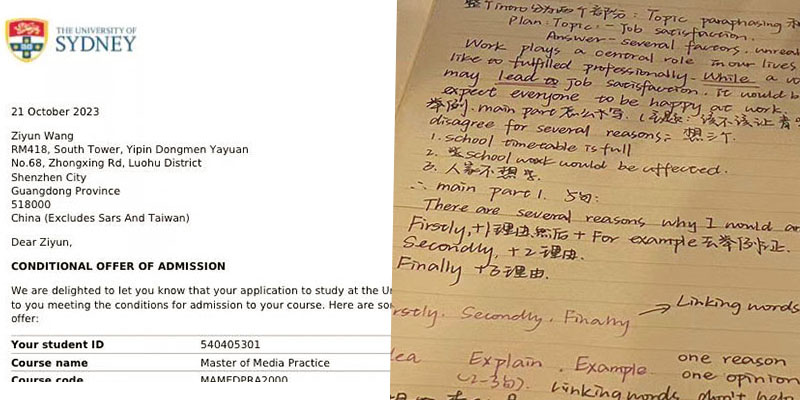 THE UNIVERSITY OF
SYDNEY
21 October 2023
Ziyun Wang
RM418, South Tower, Yipin Dongmen Yayuan
No.68, Zhongxing Rd, Luohu District
Shenzhen City
Guangdong Province
518000
China (Excludes Sars And Taiwan)
Dear Ziyun,
CONDITIONAL OFFER OF ADMISSION
We are delighted to let you know that your application to study at the
to you meeting the conditions for admission to your course. Here are
offer:
Your student ID 540405301
Course name Master of Media Practice
Course code MAMEDPRA2000
intro 分为两个部分: Topic paraphasing
Plan: Topic: - Job satisfaction.
Answer - several factors.
Work plays a central role in our lives
like to fulfilled professionally. While a
may lead to job satisfaction. It would
expect everyone to be happy at work.
举例. main part 怎么个写.
disagree for several reasons: 想三个.
1. school timetable is full
2. school work would be affected.
3. 人家不想学.
∴ main part 1. 5句:
There are several reasons why I would
Firstly, +1理由, 然后 + For example 去举例
Secondly, +2理由.
Finally +3理由.
Secondly. Finally → Linking words
Explain. Example one reason
(2-3句). Linking words don't help one opinion